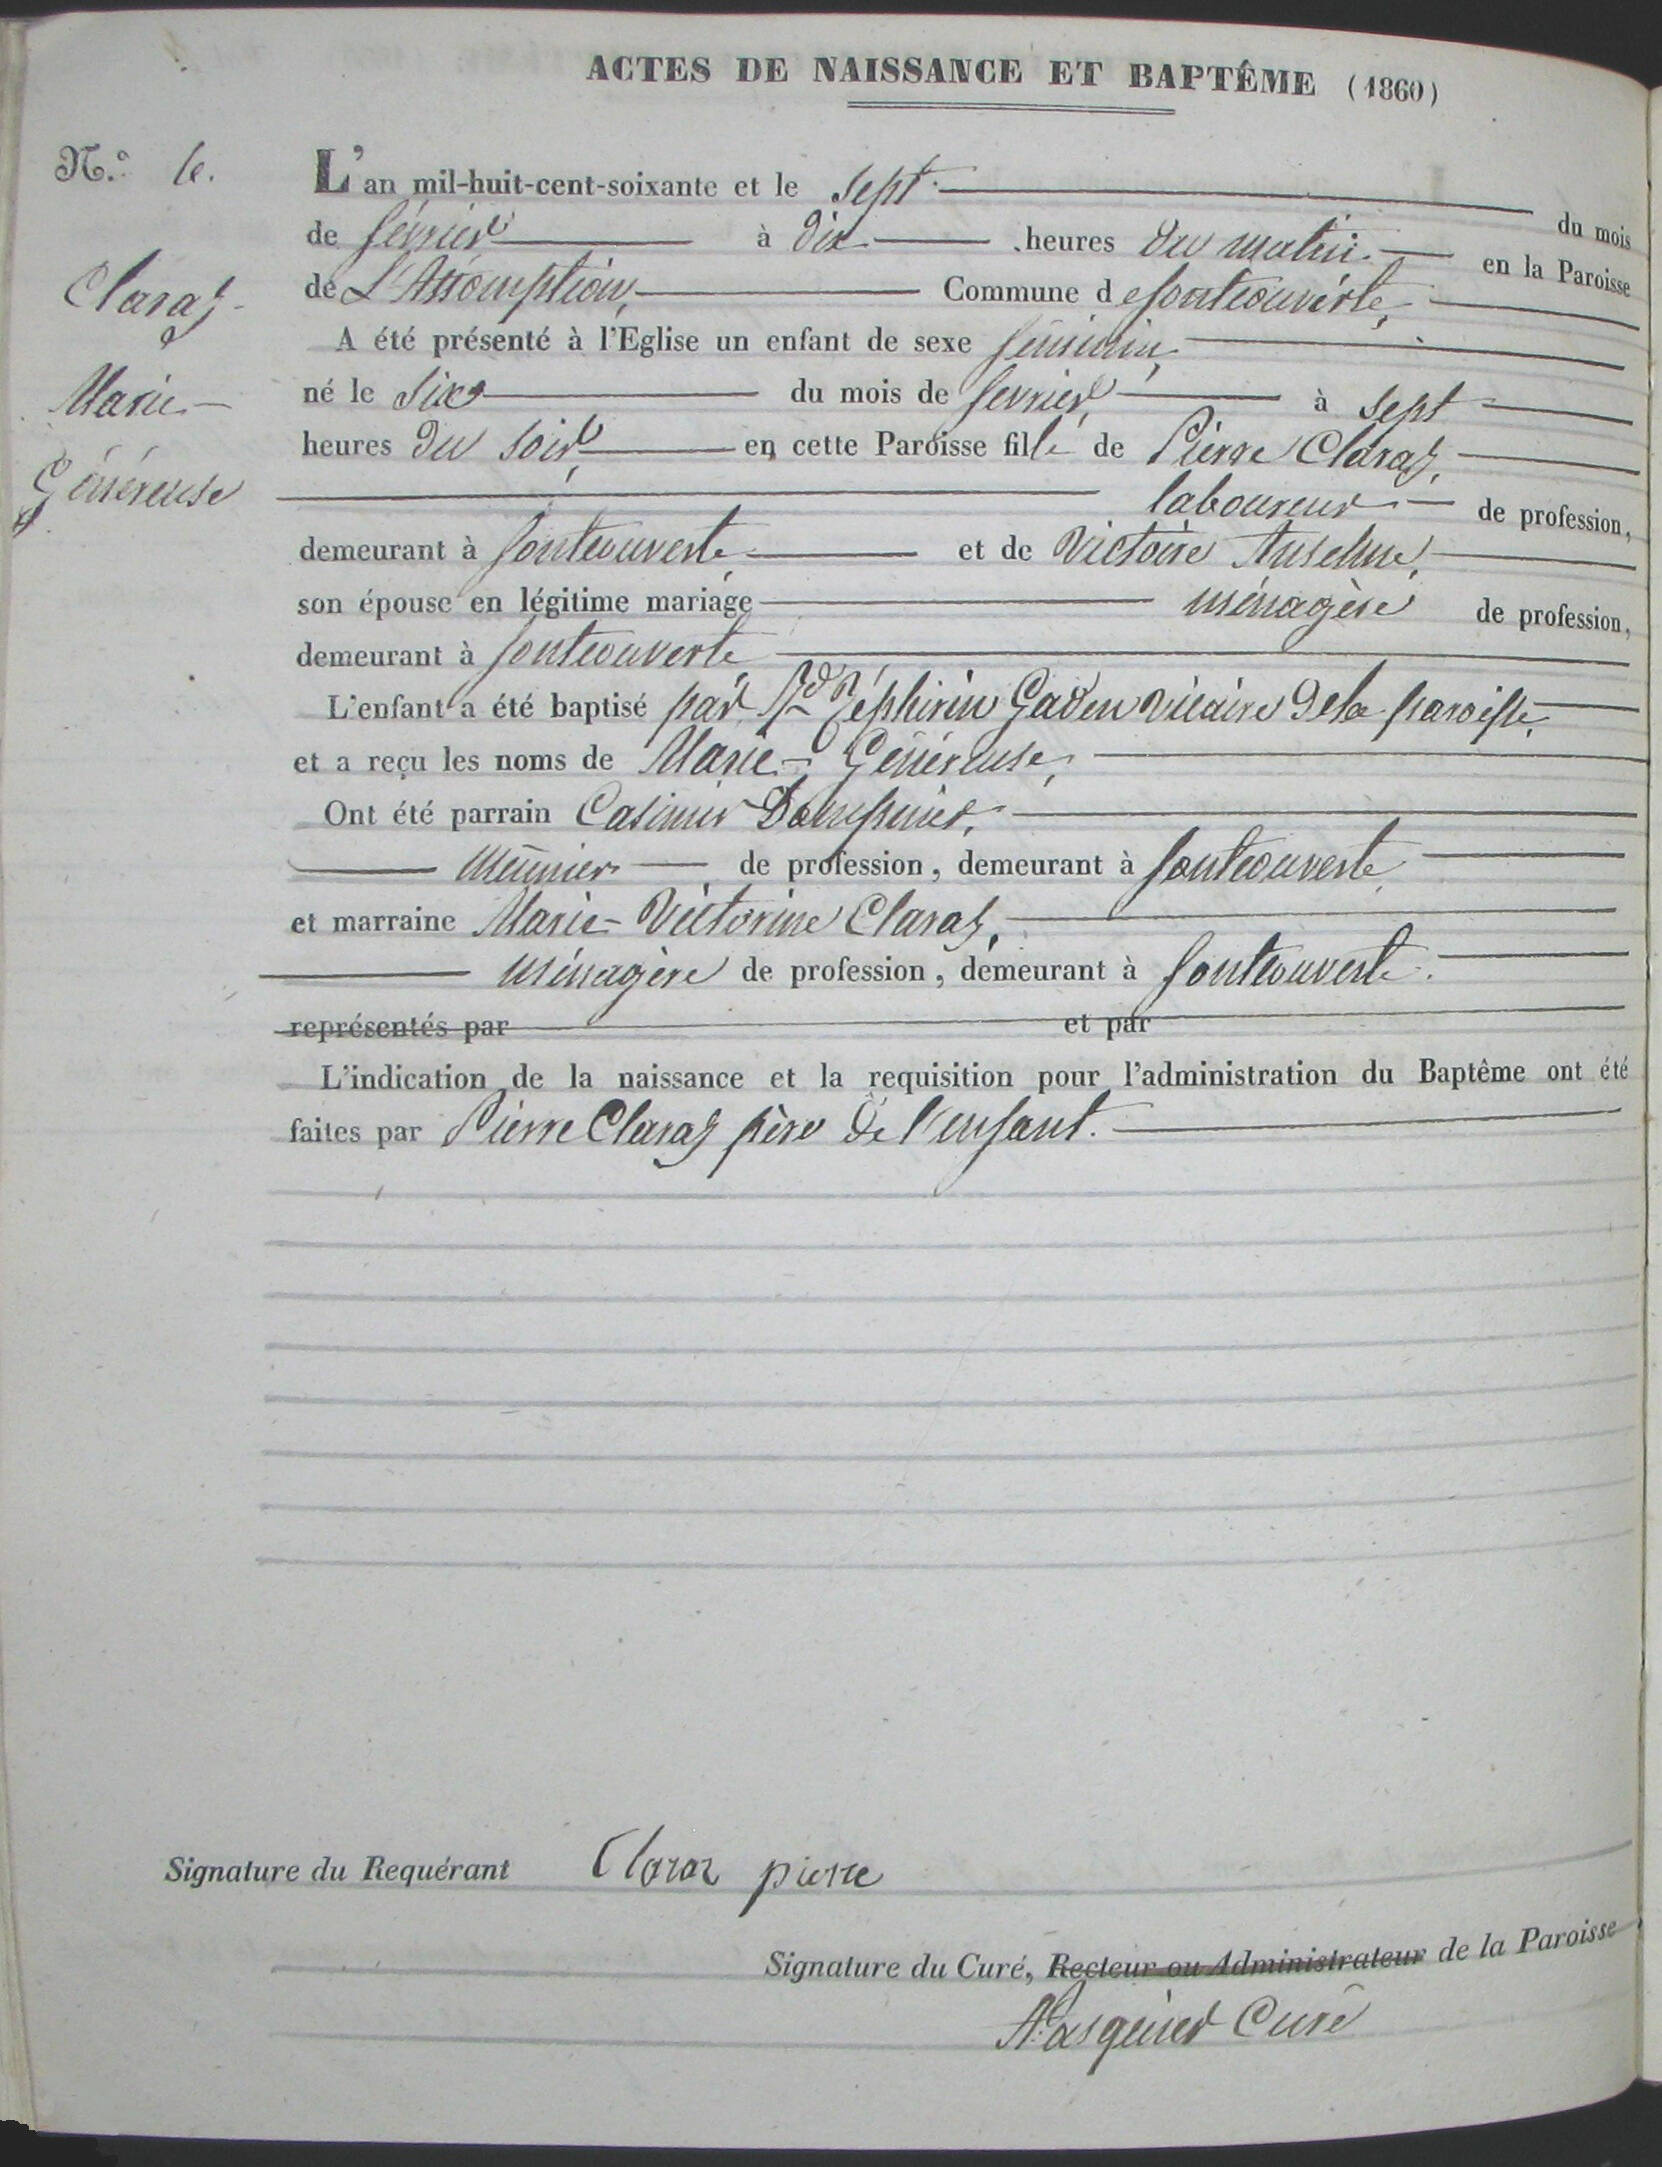 ACTES DE NAISSANCE ET BAPTÊME (1860)
N.º 6.
Claraz
Marie-
Généreuse
L'an mil-huit-cent-soixante et le sept du mois
de février à dix heures du matin en la Paroisse
de L'Assomption, Commune de fontcouverte,
A été présenté à l'Eglise un enfant de sexe féminin,
né le six du mois de février à sept
heures du soir, en cette Paroisse fille de Pierre Claraz,
laboureur de profession,
demeurant à fontcouverte et de Victoire Anselme,
son épouse en légitime mariage ménagère de profession,
demeurant à fontcouverte
L'enfant a été baptisé par Rd Zéphirin Gaden vicaire de la paroisse,
et a reçu les noms de Marie-Généreuse,
Ont été parrain Casimir Dompnier,
meunier de profession, demeurant à fontcouverte
et marraine Marie-Victorine Claraz,
ménagère de profession, demeurant à fontcouverte.
représentés par et par
L'indication de la naissance et la requisition pour l'administration du Baptême ont été
faites par Pierre Claraz père de l'enfant.
Signature du Requérant Claraz pierre
Signature du Curé, Recteur ou Administrateur de la Paroisse
Pasquier Curé